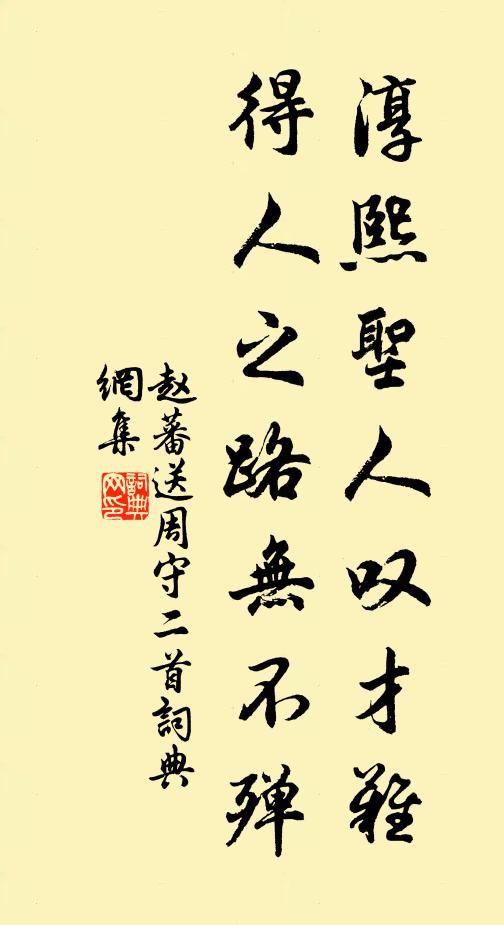 淳熙聖人叹才難
得人之路無不殫
赵蕃送周守二首詞典
網集
詞典
网印